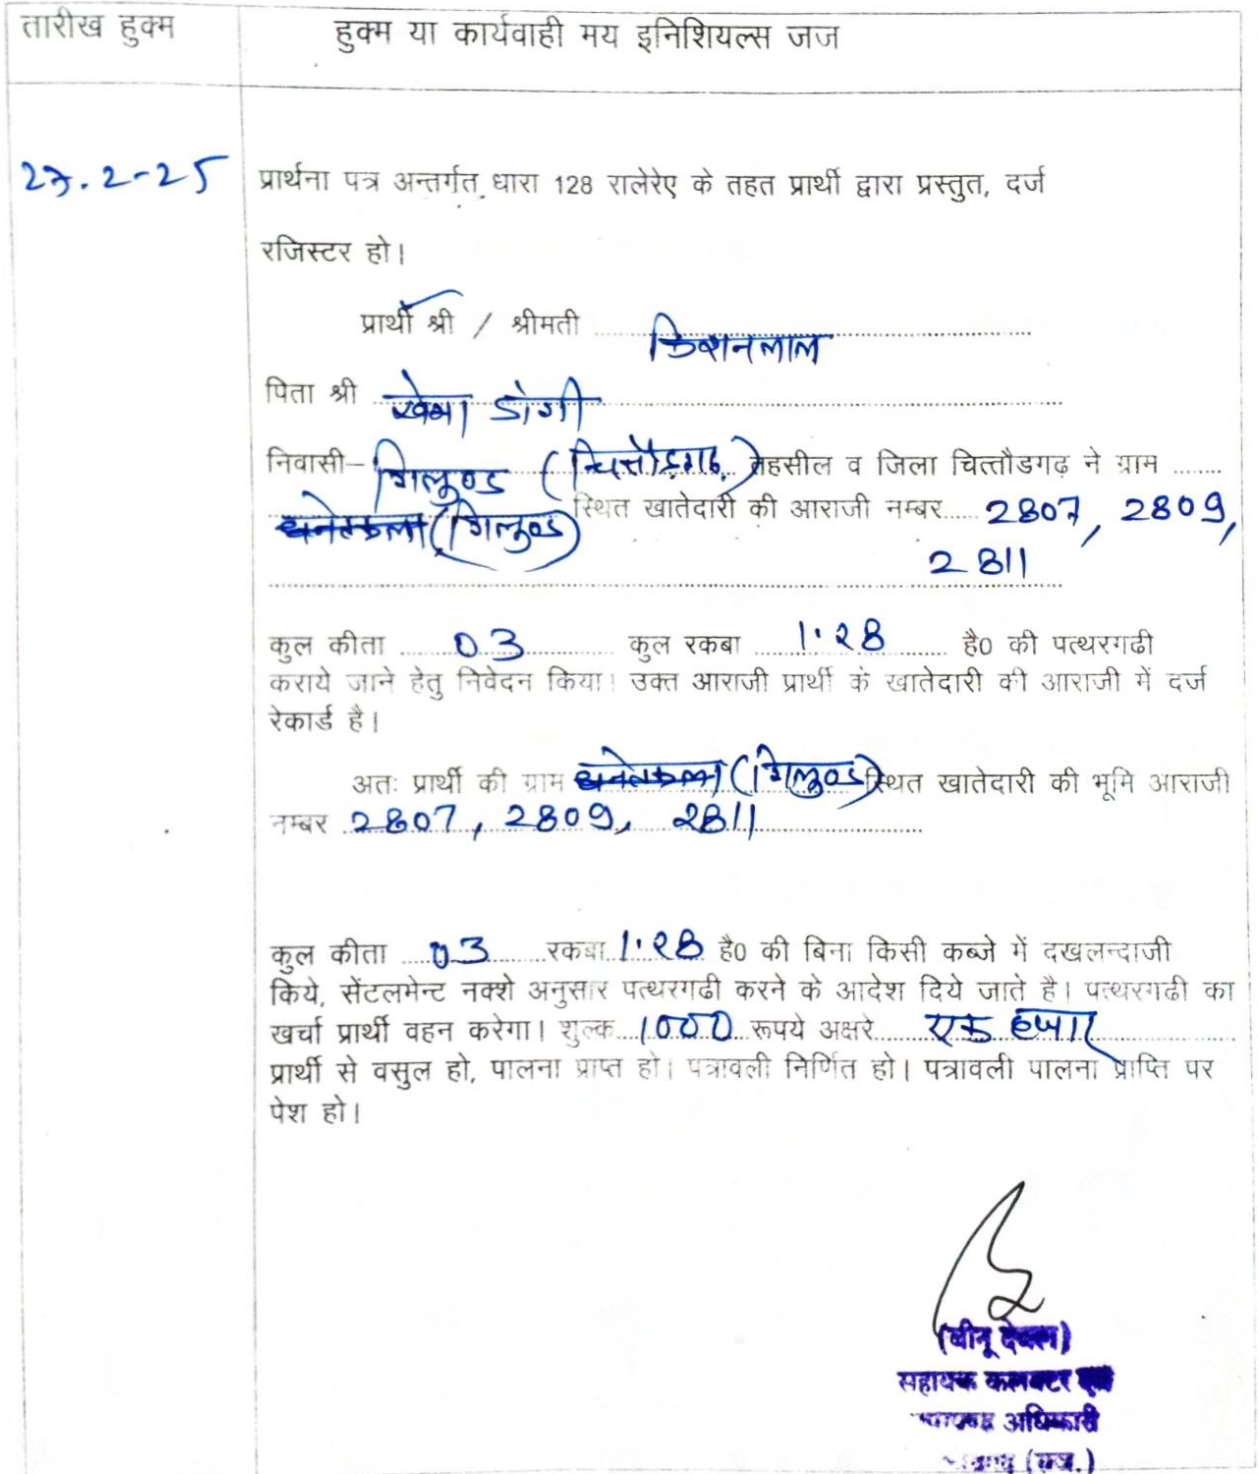 तारीख हुक्म
हुक्म या कार्यवाही मय इनिशियल्स जज
27.2-25
प्रार्थना पत्र अन्तर्गत धारा 128 रालेरेए के तहत प्रार्थी द्वारा प्रस्तुत, दर्ज
रजिस्टर हो।
प्रार्थी श्री / श्रीमती किशनलाल
पिता श्री खेमा डांगी
निवासी– गिलुण्ड (चित्तौड़गढ़) तहसील व जिला चित्तौडगढ़ ने ग्राम ........
धनेतकला (गिलुण्ड) स्थित खातेदारी की आराजी नम्बर..... 2807, 2809,
2811
कुल कीता ..... 03 ..... कुल रकबा ..... 1.28 ..... है0 की पत्थरगढी
कराये जाने हेतु निवेदन किया। उक्त आराजी प्रार्थी के खातेदारी की आराजी में दर्ज
रेकार्ड है।
अतः प्रार्थी की ग्राम धनेतकला (गिलुण्ड) स्थित खातेदारी की भूमि आराजी
नम्बर 2807, 2809, 2811
कुल कीता .... 03 ....रकबा 1.28 है0 की बिना किसी कब्जे में दखलन्दाजी
किये, सेंटलमेन्ट नक्शे अनुसार पत्थरगढी करने के आदेश दिये जाते है। पत्थरगढी का
खर्चा प्रार्थी वहन करेगा। शुल्क.. 1000 ..रूपये अक्षरे..... एक हजार
प्रार्थी से वसुल हो, पालना प्राप्त हो। पत्रावली निर्णित हो। पत्रावली पालना प्राप्ति पर
पेश हो।
(बीनू देवल)
सहायक कलक्टर एवं
अधिकारी
(राज.)